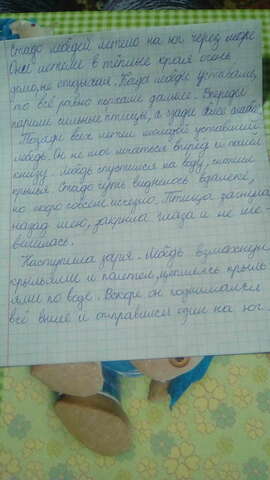 Стадо лебедей летело на юг через море.
Они летели в тёплые края очень
долго, не отдыхая. Когда лебеди уставали,
то всё равно
летели сильные птицы, а сзади более слабые.
Позади всех летел молодой уставший
лебедь. Он не мог мчаться вперёд и полетел
книзу. Лебедь опустился на воду, сложил
крылья. Стадо чуть виднелось вдалеке,
но скоро совсем исчезло. Птица загнула
назад шею, закрыла глаза и не ше
вилилась.
Наступила заря. Лебедь взмахнул
крыльями и полетел, цепляясь крыль
ями по воде. Вскоре он поднимался
всё выше и отправился один на юг.